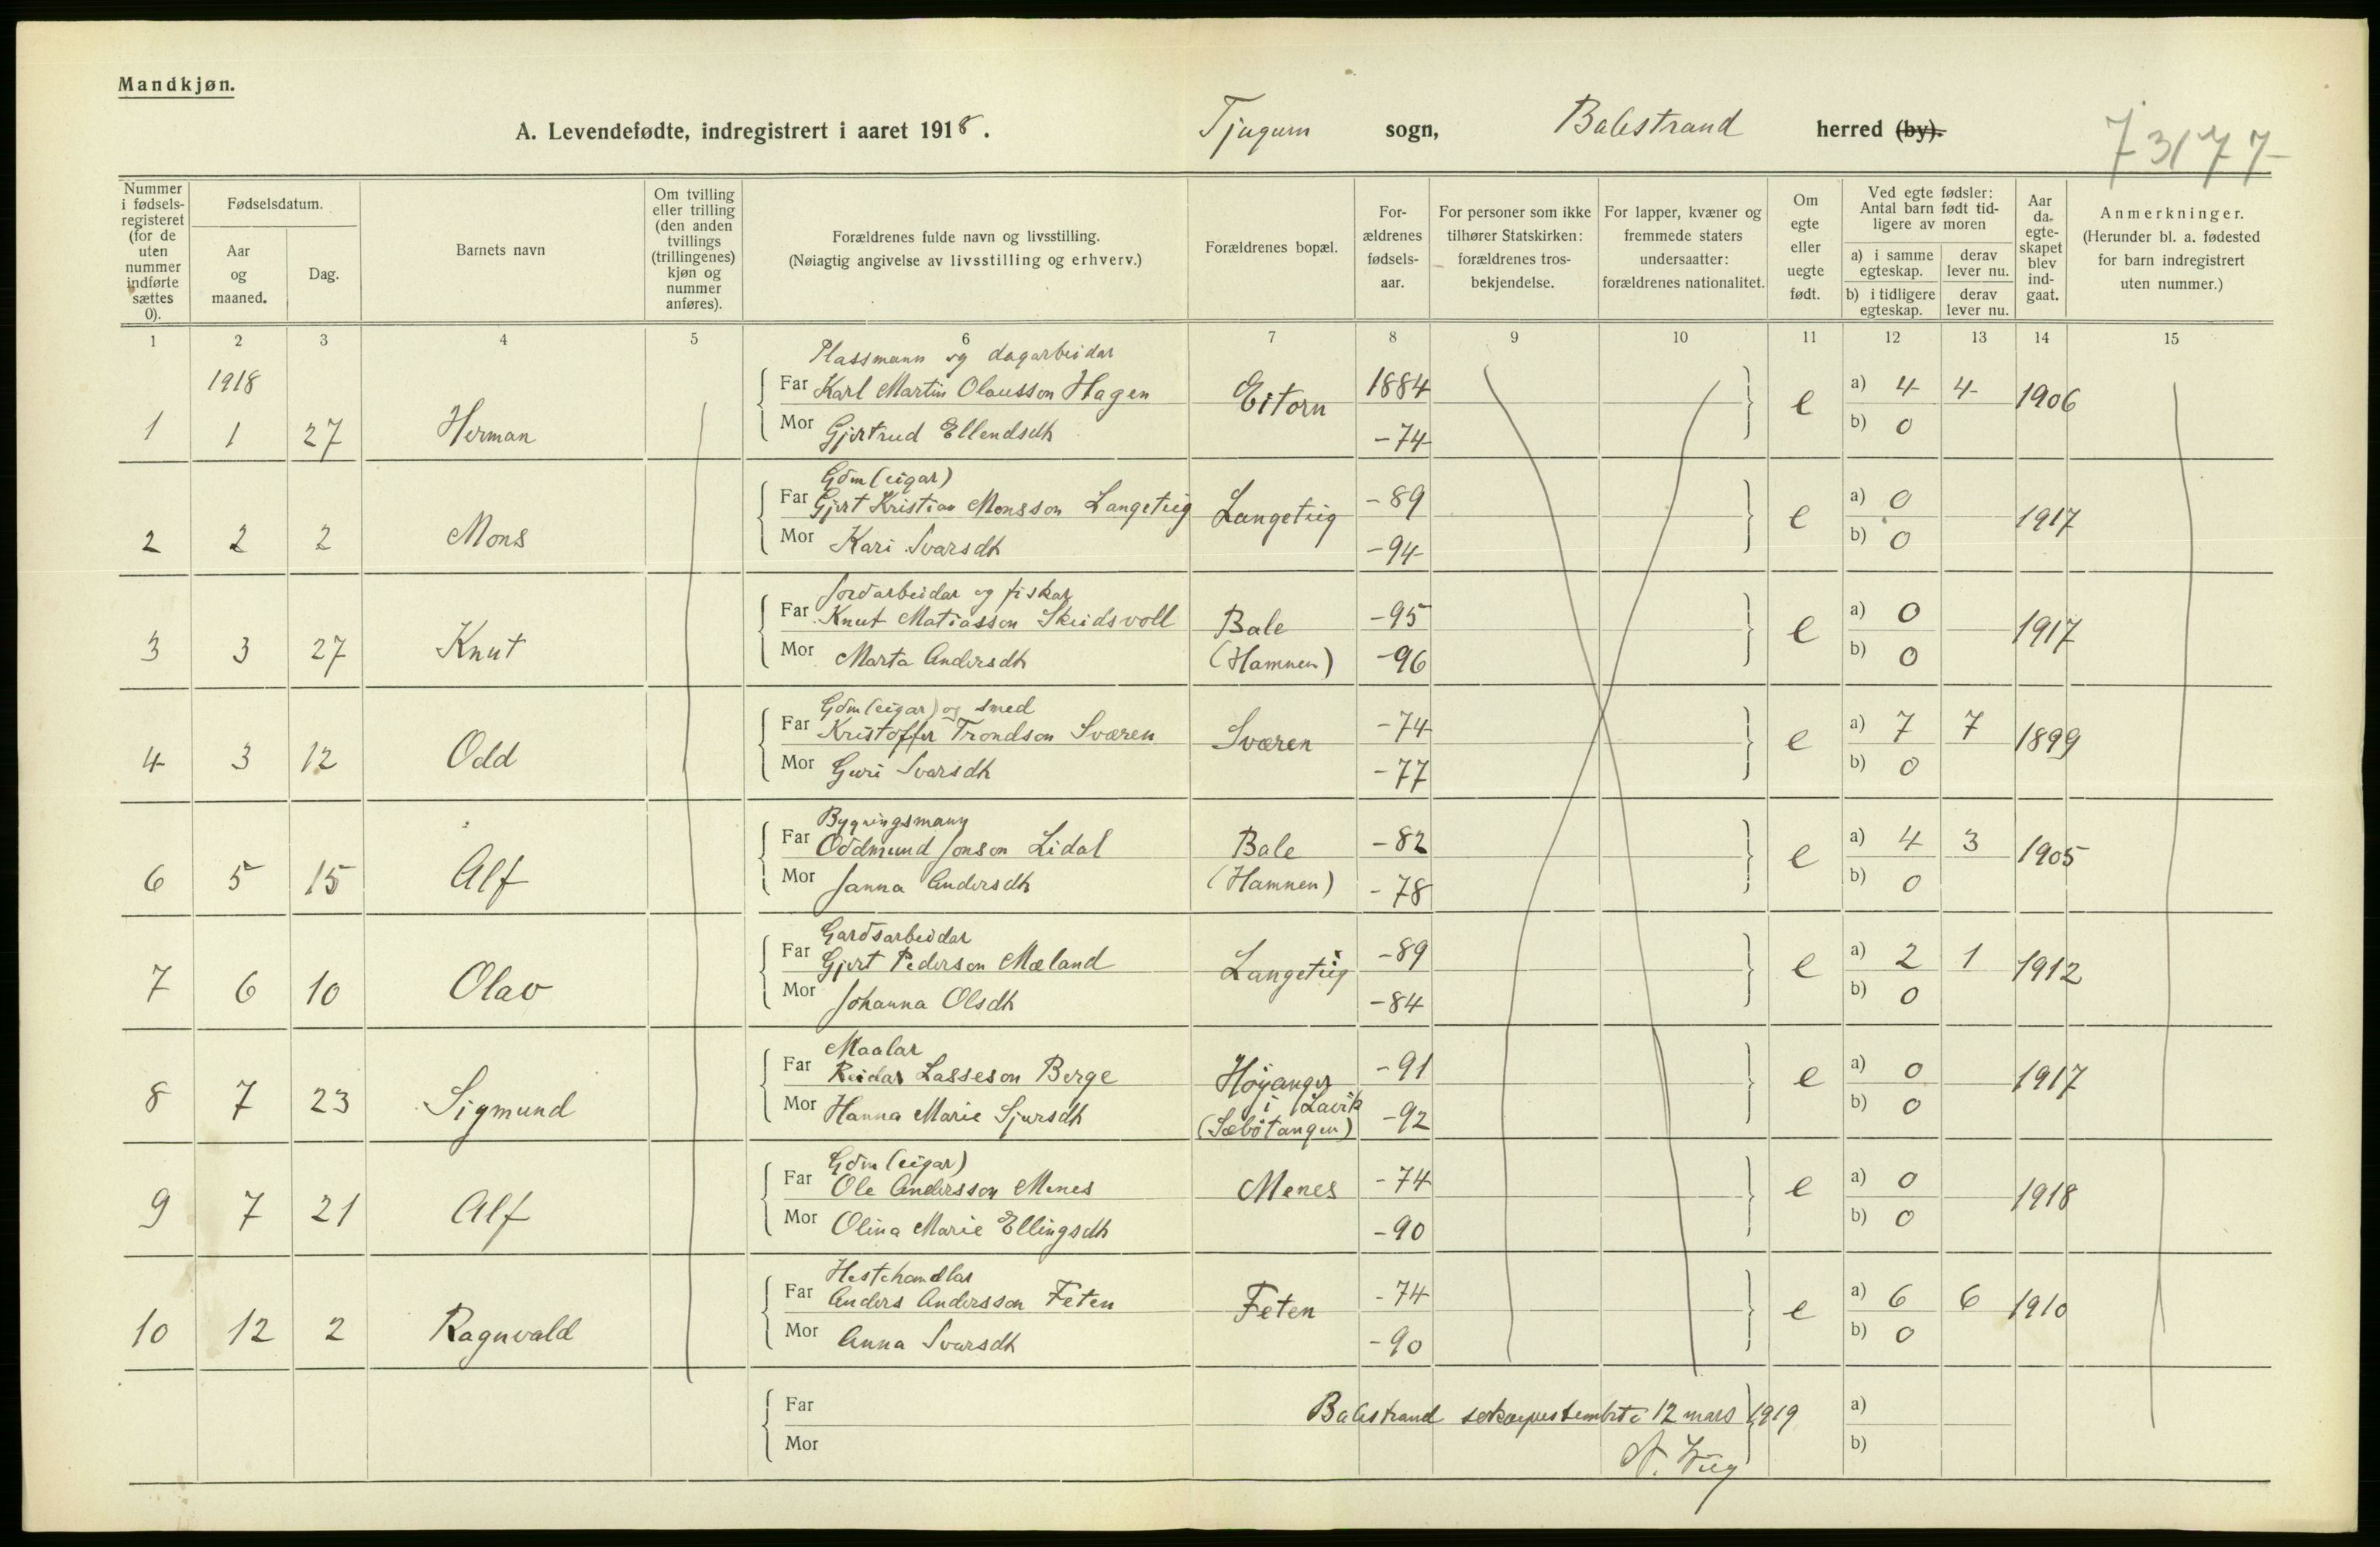 Mandkjøn.
A. Levendefødte, indregistrert i aaret 1918. Tjugum sogn, Balestrand herred (by).
73177
Nummer i fødselsregisteret (for de uten nummer indførte sættes 0).
Fødselsdatum.
Aar og maaned.
Dag.
Barnets navn
Om tvilling eller trilling (den anden tvillings (trillingenes) kjøn og nummer anføres).
Forældrenes fulde navn og livsstilling.
(Nøiagtig angivelse av livsstilling og erhverv.)
Forældrenes bopæl.
Forældrenes fødselsaar.
For personer som ikke tilhører Statskirken: forældrenes trosbekjendelse.
For lapper, kvæner og fremmede staters undersaatter: forældrenes nationalitet.
Om egte eller uegte født.
Ved egte fødsler: Antal barn født tidligere av moren
a) i samme egteskap. derav lever nu.
b) i tidligere egteskap. derav lever nu.
Aar da egteskapet blev indgaat.
Anmerkninger.
(Herunder bl. a. fødested for barn indregistrert uten nummer.)
1 2 3 4 5 6 7 8 9 10 11 12 13 14 15
1918
Plassmann og dagarbeidar
Far Karl Martin Olausson Hagen Eitorn 1884 e a) 4 4 1906
1 1 27 Herman Mor Gjertrud Ellendsdtr -74 b) 0
Gdm (eigar)
Far Gjert Kristian Monsson Langeteig Langeteig -89 e a) 0 1917
2 2 2 Mons Mor Kari Ivarsdtr -94 b) 0
Jordarbeidar og fiskar
Far Knut Matiasson Skeidsvoll Bale -95 e a) 0 1917
3 3 27 Knut Mor Marta Andersdtr (Hamnen) -96 b) 0
Gdm (eigar) og smed
Far Kristoffer Trondson Sværen Sværen -74 e a) 7 7 1899
4 3 12 Odd Mor Guri Ivarsdtr -77 b) 0
Bygningsmann
Far Oddmund Jonson Lidal Bale -82 e a) 4 3 1905
6 5 15 Alf Mor Janna Andersdtr (Hamnen) -78 b) 0
Gardsarbeidar
Far Gjert Pederson Mæland Langeteig -89 e a) 2 1 1912
7 6 10 Olav Mor Johanna Olsdtr -84 b) 0
Maalar
Far Reidar Lasseson Berge Høyanger -91 e a) 0 1917
i Lavik
8 7 23 Sigmund Mor Hanna Marie Sjursdtr (Sæbøtangen) -92 b) 0
Gdm (eigar)
Far Ole Andersson Menes Menes -74 e a) 0 1918
9 7 21 Alf Mor Olina Marie Ellingsdtr -90 b) 0
Hestehandlar
Far Anders Andersson Feten Feten -74 e a) 6 6 1910
10 12 2 Ragnvald Mor Anna Ivarsdtr -90 b) 0
Far Balestrand 12 mars 1919 a)
Mor b)